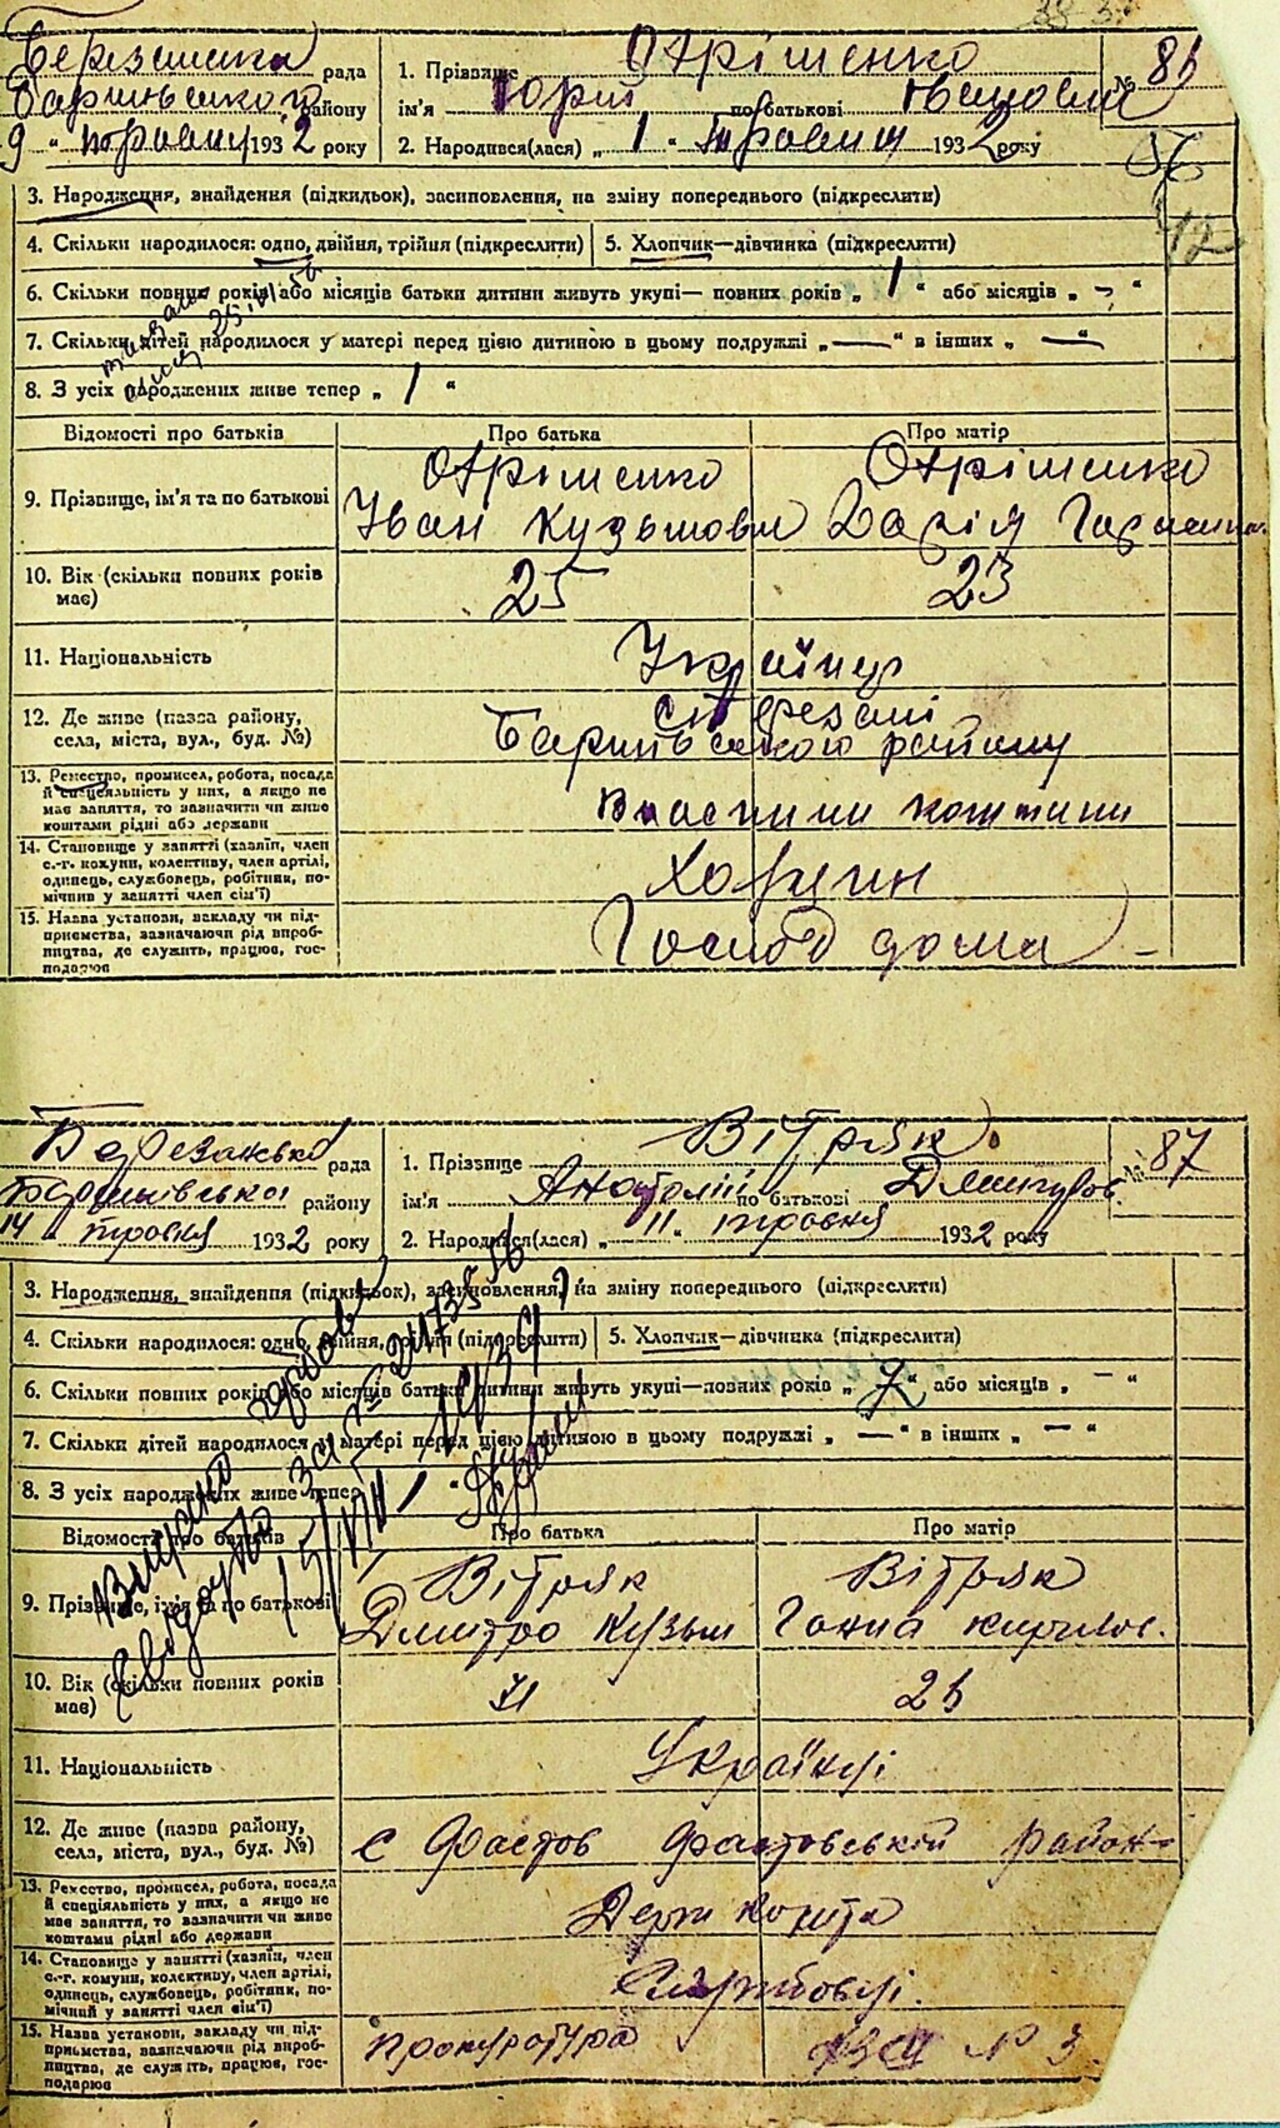 Березанська рада
Баришівського району
9 " травня 1932 року
1. Прізвище Отрішенко
ім'я Юрій по батькові Іванович
№ 86
2. Народився(лася) „ 1 " травня 1932 року
56
12
3. Народження, знайдення (підкидьок), засиновлення, на зміну попереднього (підкреслити)
4. Скільки народилося: одно, двійня, трійня (підкреслити) 5. Хлопчик—дівчинка (підкреслити)
6. Скільки повних років або місяців батьки дитини живуть укупі— повних років „ 1 " або місяців „ - "
7. Скільки дітей народилося у матері перед цією дитиною в цьому подружжі „ — " в інших „ — "
8. З усіх народжених живе тепер „ 1 "
Відомості про батьків Про батька Про матір
9. Прізвище, ім'я та по батькові
Отрішенко Отрішенко
Іван Кузьмови Дарія
10. Вік (скільки повних років має)
25 23
11. Національність
Українці
12. Де живе (назва району, села, міста, вул., буд. №)
Березані
Баришівського району
13. Ремество, промисел, робота, посада
й спеціяльність у них, а якщо не
має заняття, то зазначити чи живе
коштами рідні або держави
Власними коштами
14. Становище у занятті (хазяїн, член
с.-г. комуни, колективу, член артілі,
одинець, службовець, робітник, по-
мічник у занятті член сім'ї)
15. Назва установи, закладу чи під-
приємства, зазначаючи рід вироб-
ництва, де служить, працює, гос-
подарює
дома -
Березанська рада
Баришівська району
14 " травня 1932 року
1. Прізвище Вітряк
ім'я Анатолій по батькові Дмитров.
№ 87
2. Народився(лася) „ 11 " травня 1932 року
3. Народження, знайдення (підкидьок), засиновлення, на зміну попереднього (підкреслити)
4. Скільки народилося: одно, двійня, трійня (підкреслити) 5. Хлопчик—дівчинка (підкреслити)
6. Скільки повних років або місяців батьки дитини живуть укупі—повних років „ 7 " або місяців „ — "
7. Скільки дітей народилося у матері перед цією дитиною в цьому подружжі „ — " в інших „ — "
8. З усіх народжених живе тепер 1 "
Відомості про батьків Про батька Про матір
9. Прізвище, ім'я та по батькові
Вітряк Вітряк
Дмитро Кузьм Ганна Кирилов.
10. Вік (скільки повних років має)
26
11. Національність
Українці
12. Де живе (назва району, села, міста, вул., буд. №)
с Фастов Фастовській район
13. Ремество, промисел, робота, посада
й спеціяльність у них, а якщо не
має заняття, то зазначити чи живе
коштами рідні або держави
Держ кошта
14. Становище у занятті (хазяїн, член
с.-г. комуни, колективу, член артілі,
одинець, службовець, робітник, по-
мічний у занятті член сім'ї)
Службовці.
15. Назва установи, закладу чи під-
приємства, зазначаючи рід вироб-
ництва, де служить, працює, гос-
подарює
прокуратура № 3.